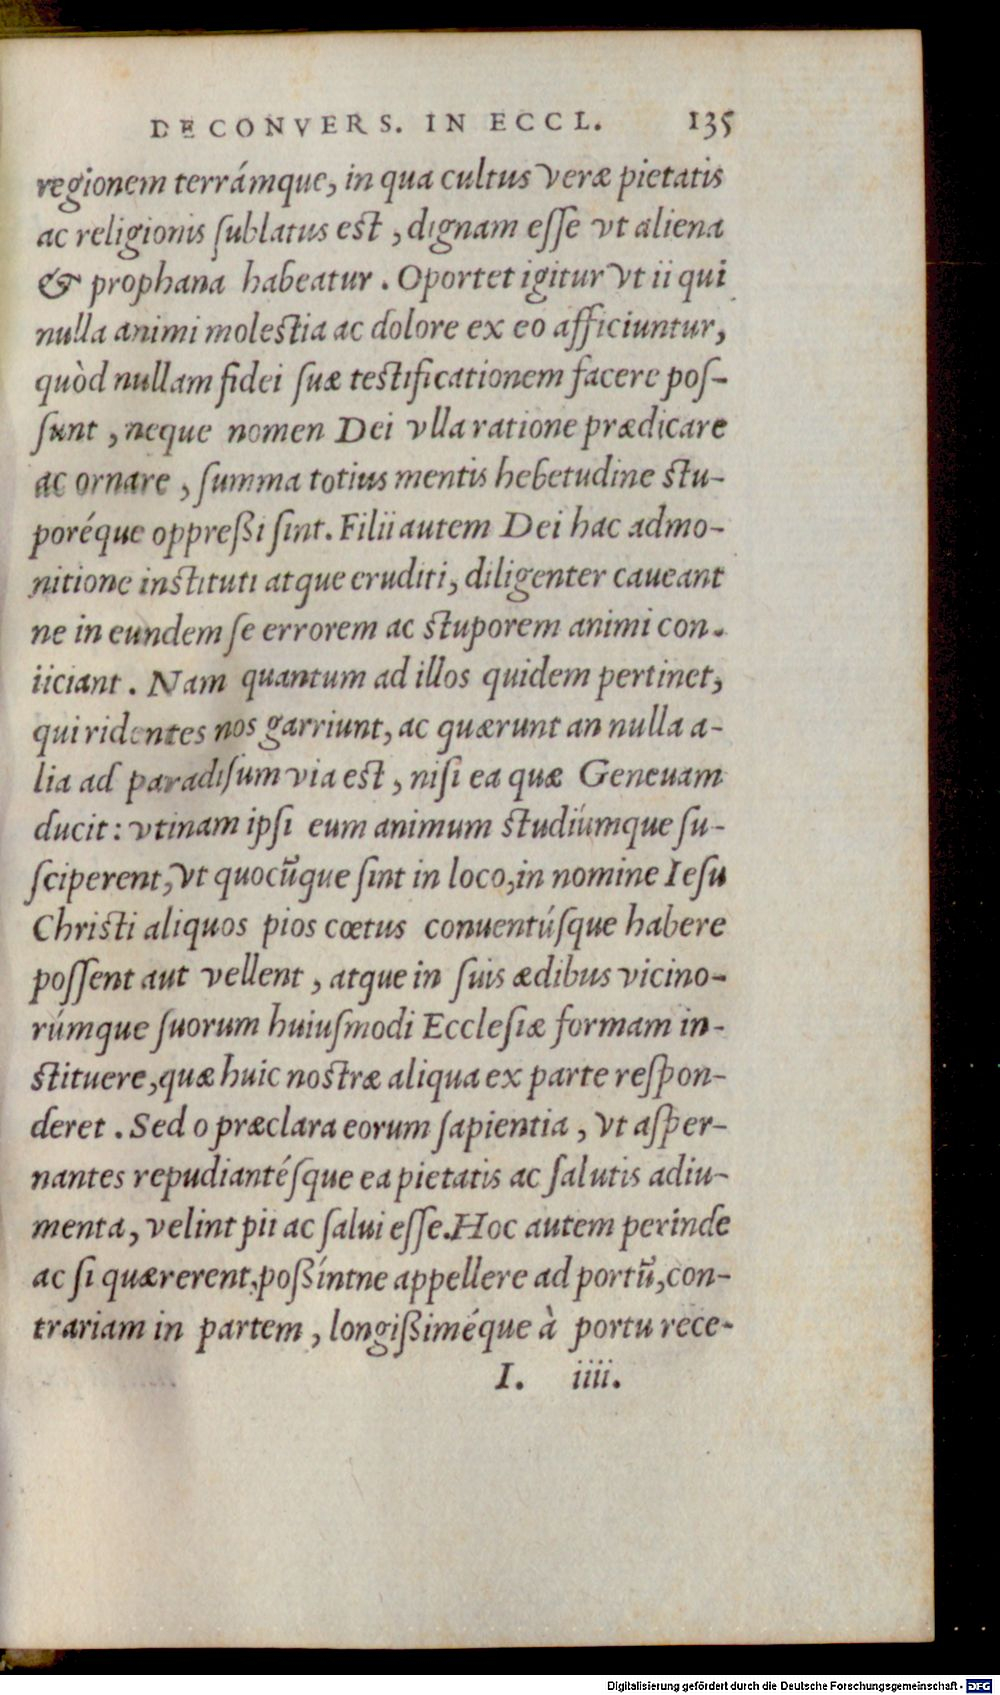 DE CONVERS. IN ECCL. 135
regionem terrámque, in qua cultus veræ pietatis
ac religionis ſublatus est, dignam eſſe vt aliena
& prophana habeatur. Oportet igitur vt ii qui
nulla animi molestia ac dolore ex eo afficiuntur,
quòd nullam fidei ſuæ testificationem facere poſ-
ſunt, neque nomen Dei vlla ratione prædicare
ac ornare, ſumma totius mentis hebetudine stu-
poréque oppreßi ſint. Filii autem Dei hac admo-
nitione instituti atque eruditi, diligenter caueant
ne in eundem ſe errorem ac stuporem animi con-
iiciant. Nam quantum ad illos quidem pertinet,
qui ridentes nos garriunt, ac quærunt an nulla a-
lia ad paradiſum via est, niſi ea quæ Geneuam
ducit: vtinam ipſi eum animum studiúmque ſu-
ſciperent, vt quocũque ſint in loco, in nomine Ieſu
Christi aliquos pios cœtus conuentúſque habere
poſſent aut vellent, atque in ſuis ædibus vicino-
rúmque ſuorum huiuſmodi Eccleſiæ formam in-
stituere, quæ huic nostræ aliqua ex parte reſpon-
deret. Sed o præclara eorum ſapientia, vt aſper-
nantes repudiantéſque ea pietatis ac ſalutis adiu-
menta, velint pii ac ſalui eſſe. Hoc autem perinde
ac ſi quærerent, poßíntne appellere ad portũ, con-
trariam in partem, longißiméque à portu rece-
I. iiii.
Digitalisierung gefördert durch die Deutsche Forschungsgemeinschaft - DFG